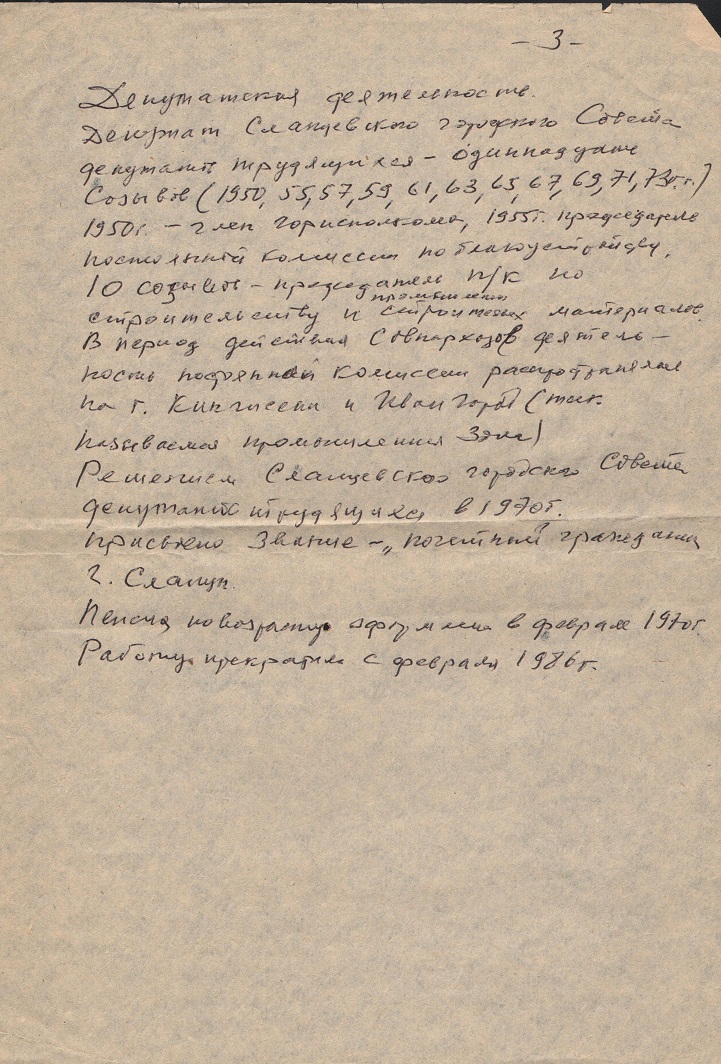 -3-
Депутатская деятельность.
Депутат Сланцевского городского Совета
депутатов трудящихся - одиннадцати
Созывов (1950, 55, 57, 59, 61, 63, 65, 67, 69, 71, 73г.г.)
1950г. - член Горисполкома, 1955г. председатель
постоянной комиссии по благоустройству,
10 созывов - председатель п/к по
промышленности
строительству и строительных материалов.
В период действия Совнархозов деятель-
ность постоянной комиссии распространялась
на г. Кингисепп и Ивангород (так
называемая промышленная зона)
Решением Сланцевского городского Совета
депутатов трудящихся в 1970г.
присвоено звание - „почетный гражданин
г. Сланцы.
Пенсия по возрасту оформлена в феврале 1970г.
Работу прекратил с февраля 1986г.